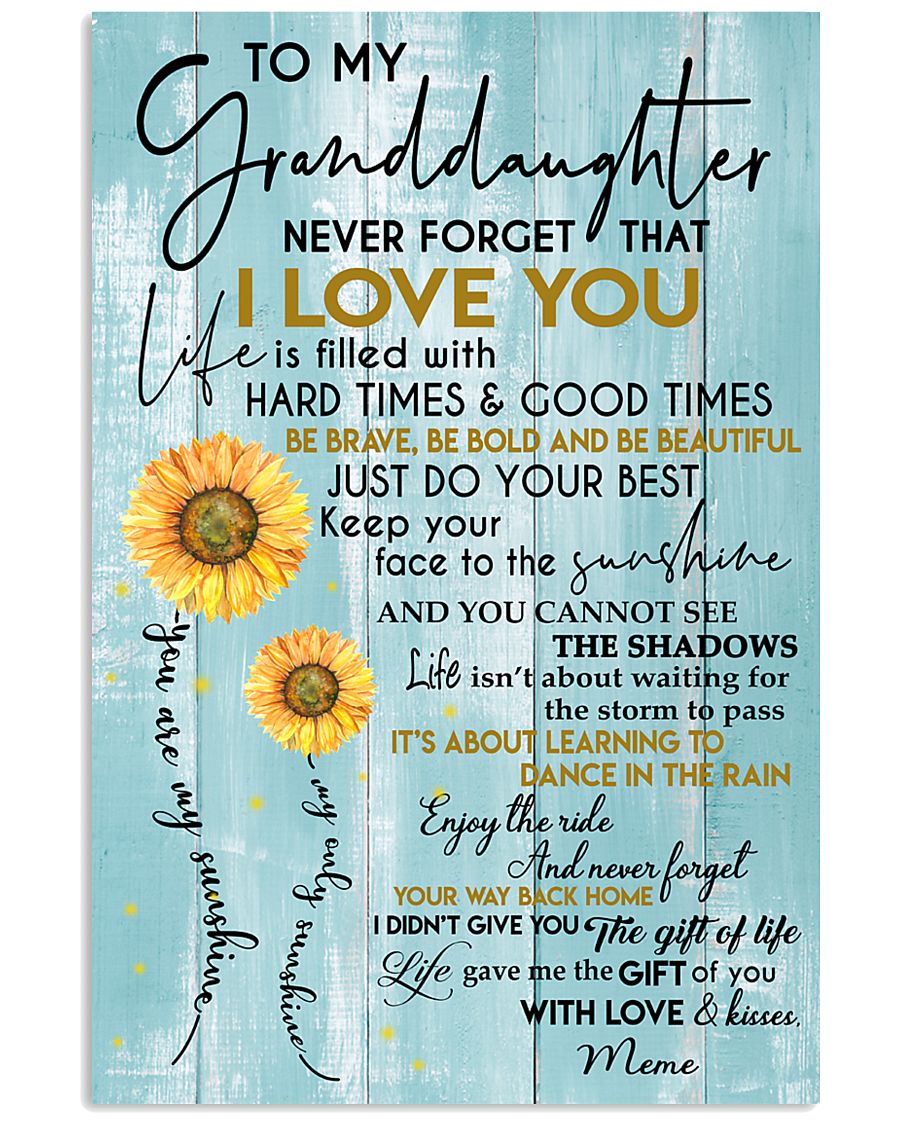 TO MY
Granddaughter
NEVER FORGET THAT
I LOVE YOU
Life is filled with
HARD TIMES & GOOD TIMES
BE BRAVE, BE BOLD AND BE BEAUTIFUL
JUST DO YOUR BEST
Keep your
face to the sunshine
AND YOU CANNOT SEE
THE SHADOWS
Life isn't about waiting for
the storm to pass
IT'S ABOUT LEARNING TO
DANCE IN THE RAIN
Enjoy the ride
And never forget
YOUR WAY BACK HOME
I DIDN'T GIVE YOU The gift of life
Life gave me the GIFT of you
WITH LOVE & kisses,
Meme
you are my sunshine
my only sunshine